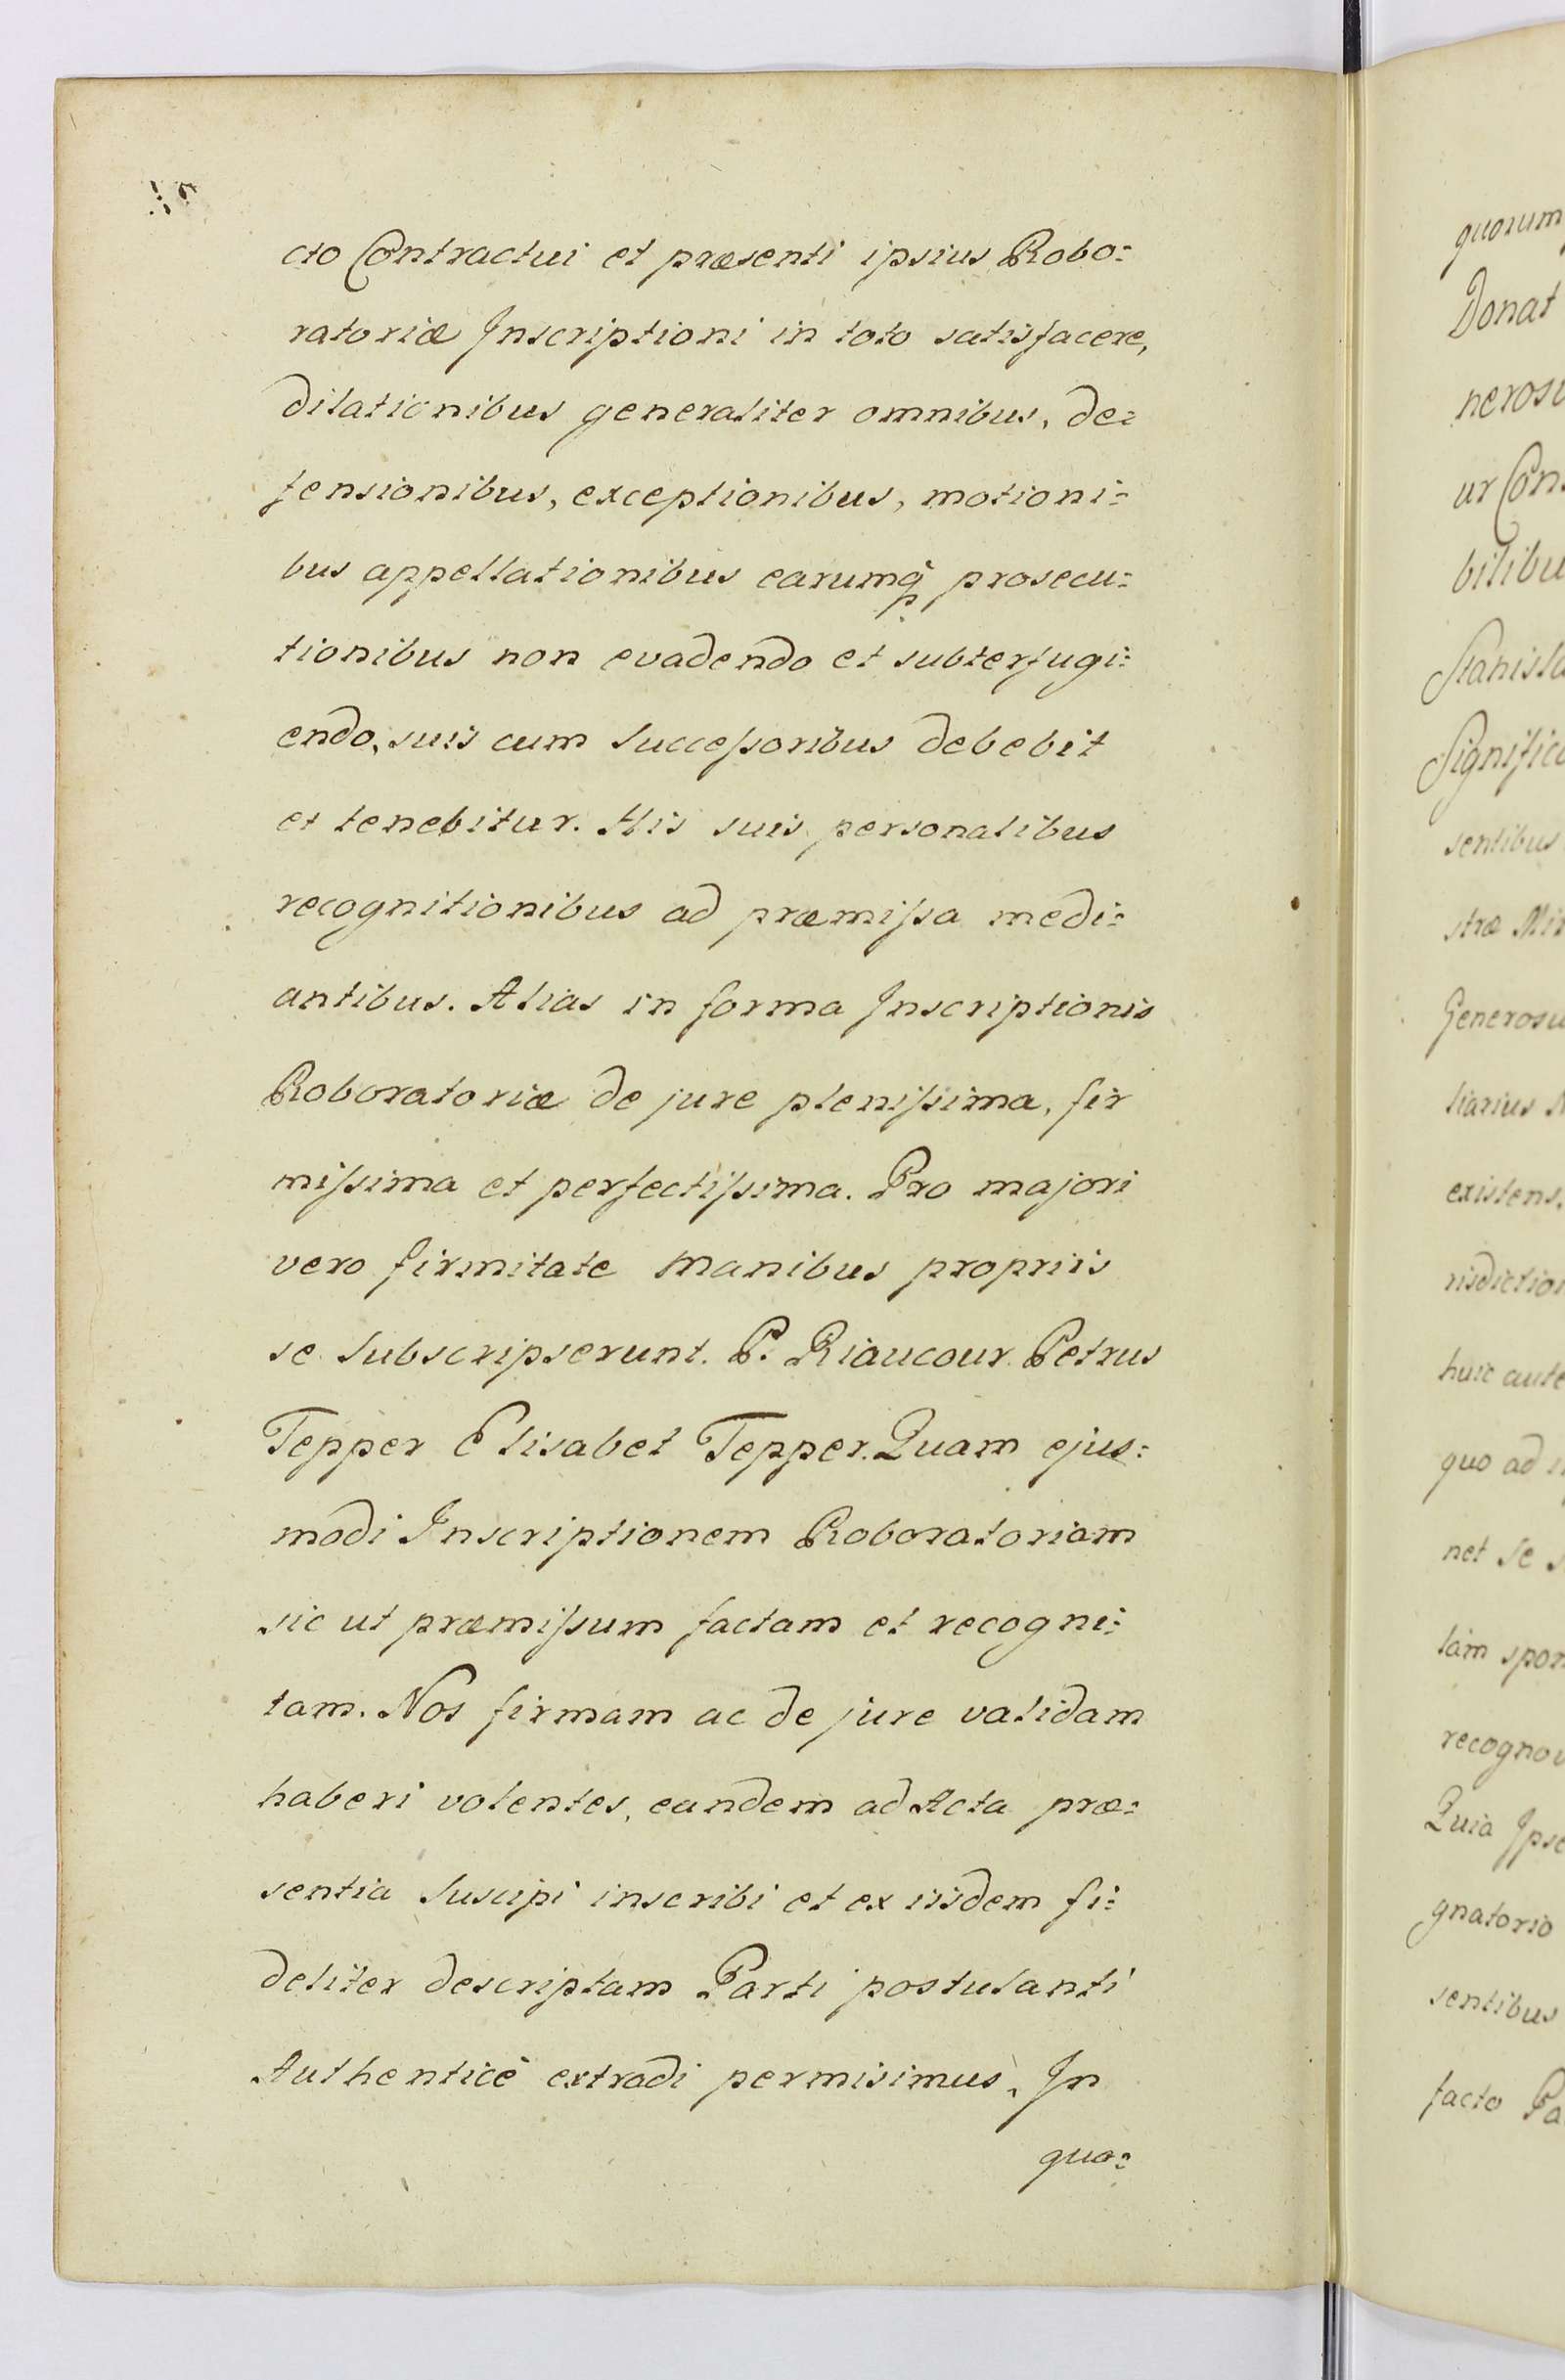 cto Contractui et præsenti ipsius Robo:
ratoriæ Inscriptioni in toto satisfacere,
dilationibus generaliter omnibus, de:
fensionibus, exceptionibus, motioni:
bus appellationibus earumq̃ prosecu:
tionibus non evadendo et subterfugi:
endo, suis cum Succeſsoribus debebit
et tenebitur. His suis personalibus
recognitionibus ad præmiſsa medi:
antibus. Alias in forma Inscriptionis
Roboratoriæ de jure pleniſsima, fir
miſsima et perfectiſsima. Pro majori
vero firmitate manibus propriis
se Subscripserunt. P. Riaucour Petrus
Tepper Elisabet Tepper. Quam ejus:
modi Inscriptionem Roboratoriam
sic ut præmiſsum factam et recogni:
tam. Nos firmam ac de jure validam
haberi volentes, eandem ad Acta præ:
sentia Suscipi inscribi et ex iisdem fi:
deliter descriptam Parti postulanti
Authenticè extradi permisimus. In
quo:
quorum
Donat
nerosu
ur Con
bilibu
Stanisla
Significa
sentibus
stræ Mi
Generosu
liarius
existens.
risdiction
huic aute
quo ad
net se s
tam spon
recognov
Quia Ipse
gnatorio
sentibus
facto Pa